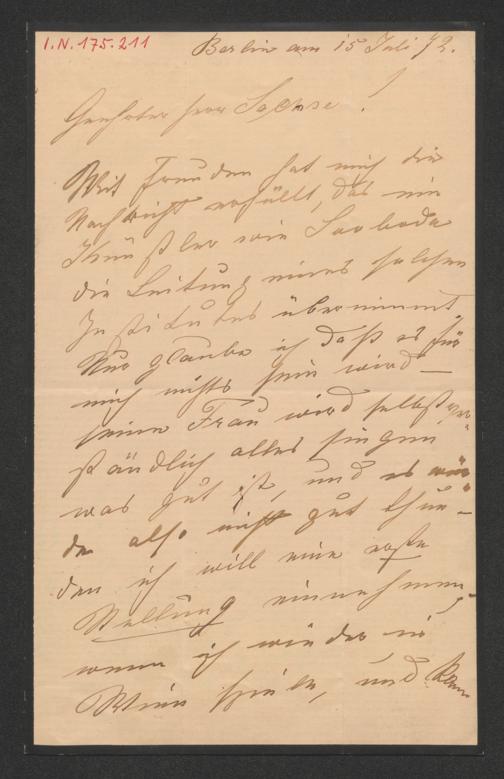 I.N. 175.211
Berlin am 15 Juli 72.
Geehrter Herr Sachse!
Mit Freuden hat mich die
Nachricht erfüllt, daß ein
Künstler wie Swoboda
die Leitung eines solchen
Institutes übernimmt.
Nur glaube ich daß es für
mich nichts sein wird —
seine Frau wird selbstver-
ständlich alles singen
was gut ist, und es wür-
de also nicht gut thun —
den ich will eine erste
Stellung einnehmen,
wenn ich wieder in
Wien spiele, und kann